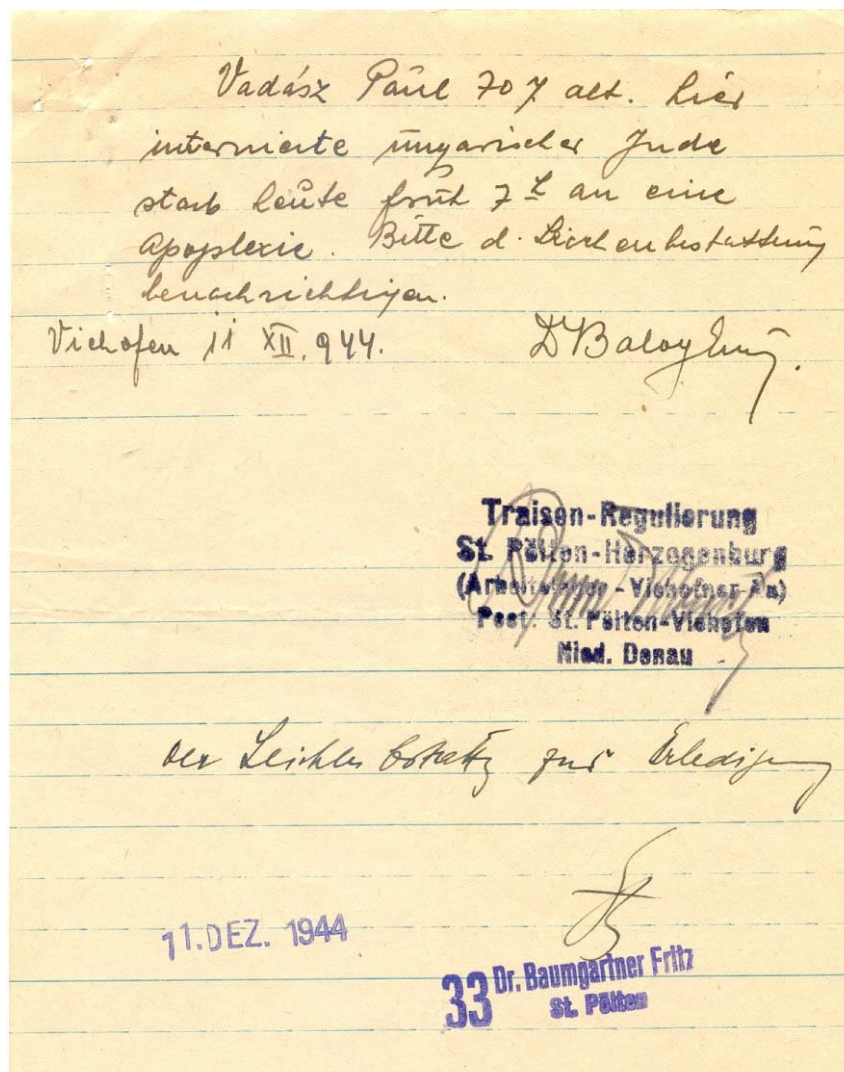 Vadász Paul 70 J alt. hier
internierte ungarischer Jude
starb heute früh 7 h an eine
Apoplexie. Bitte d. Leichenbestattung
benachrichtigen.
Viehofen 11 XII. 944.
Dr Balogh
Traisen-Regulierung
St. Pölten-Herzogenburg
(Arbeitslager - Viehofner-Au)
Post: St. Pölten-Viehofen
Nied. Donau
der zur Erledigung
11. DEZ. 1944
33 Dr. Baumgartner Fritz
St. Pölten